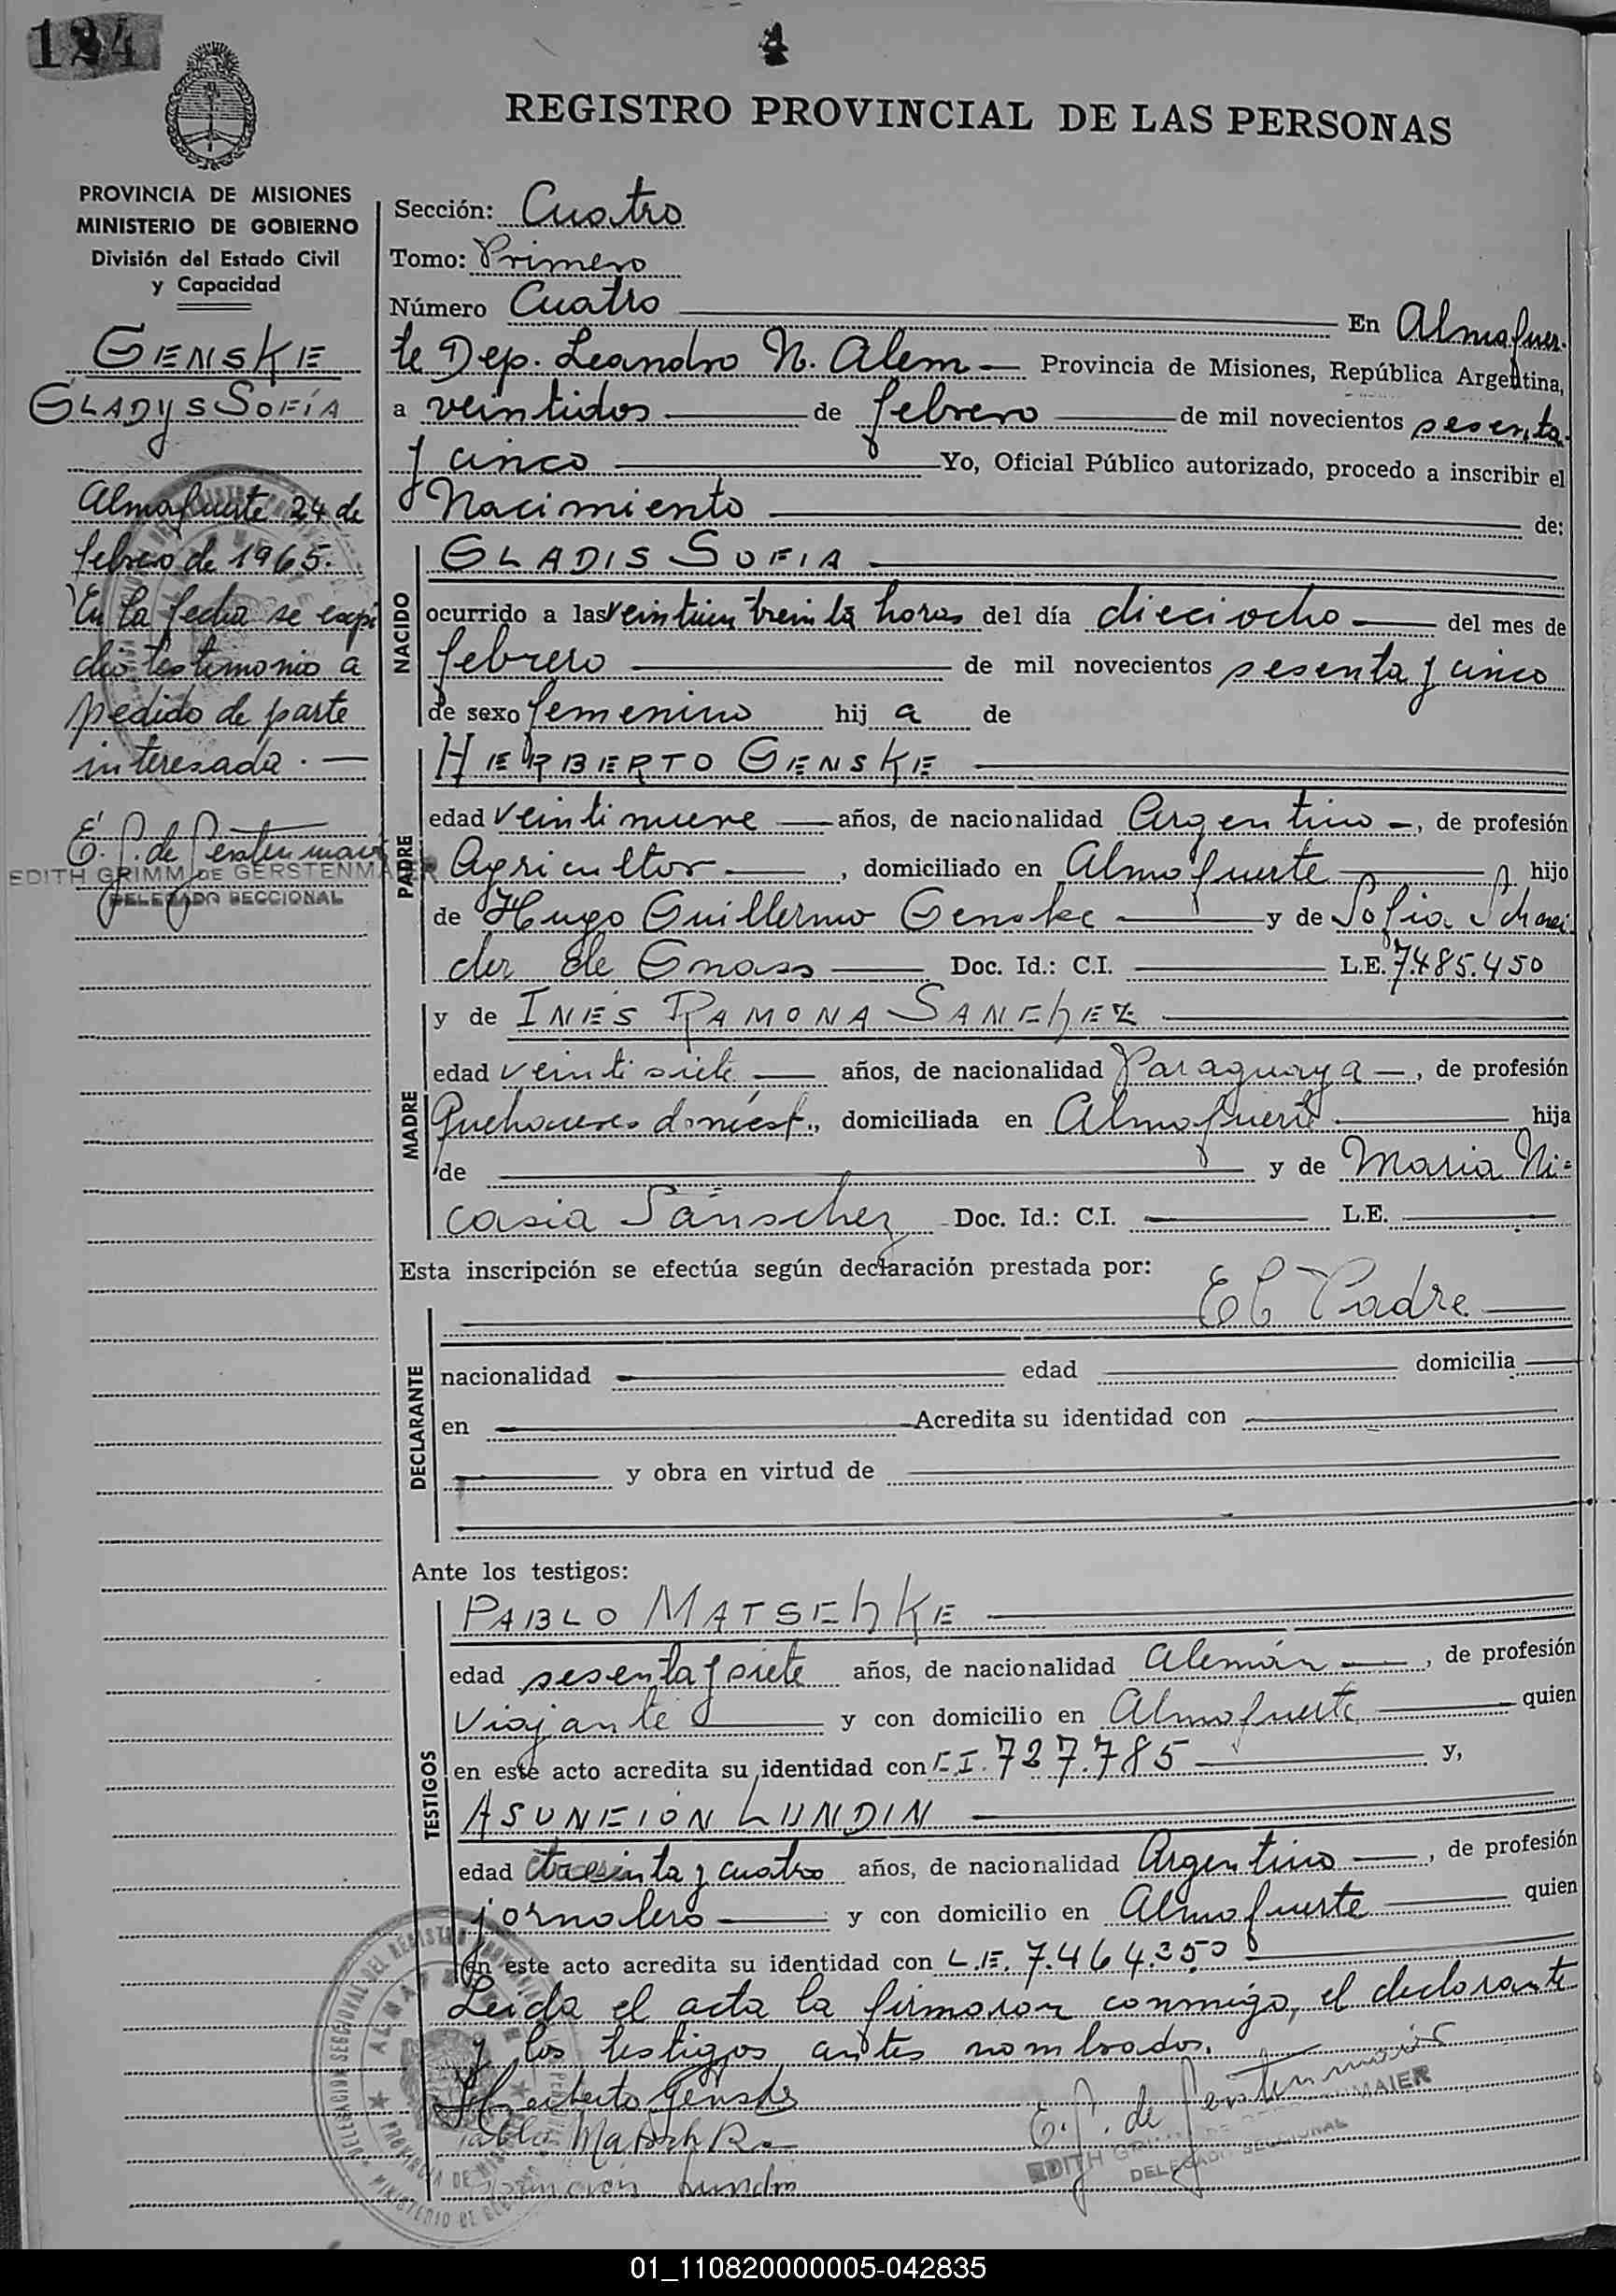 124
4
REGISTRO PROVINCIAL DE LAS PERSONAS
PROVINCIA DE MISIONES
MINISTERIO DE GOBIERNO
División del Estado Civil
y Capacidad
GENSKE
GLADYS SOFÍA
Almafuerte 24 de
febrero de 1965.
En la fecha se expi
dió testimonio a
pedido de parte
interesada. —
E. G. de Gerstenmaier
EDITH GRIMM DE GERSTENMAIER
DELEGADO SECCIONAL
Sección: Cuatro
Tomo: Primero
Número Cuatro En Almafuer.
te Dep. Leandro N. Alem — Provincia de Misiones, República Argentina,
a veintidos de febrero de mil novecientos sesenta
y cinco Yo, Oficial Público autorizado, procedo a inscribir el
Nacimiento de:
NACIDO
GLADIS SOFIA
ocurrido a las veintiun treinta horas del día dieciocho del mes de
febrero de mil novecientos sesenta y cinco
de sexo femenino hij a de
PADRE
HERBERTO GENSKE
edad veintinueve años, de nacionalidad Argentino —, de profesión
Agricultor, domiciliado en Almafuerte hijo
de Hugo Guillermo Genske y de Sofia Schnei
der de Doc. Id.: C.I. L.E. 7.485.450
MADRE
y de INÉS RAMONA SANCHEZ
edad veintisiete años, de nacionalidad Paraguaya —, de profesión
Quehaceres domést., domiciliada en Almafuerte hija
de y de Maria Ni=
casia Sánschez Doc. Id.: C.I. L.E.
Esta inscripción se efectúa según declaración prestada por:
El Padre
DECLARANTE
nacionalidad edad domicilia
en Acredita su identidad con
y obra en virtud de
Ante los testigos:
TESTIGOS
PABLO MATSCHKE
edad sesenta y siete años, de nacionalidad Alemán —, de profesión
Viajante y con domicilio en Almafuerte quien
en este acto acredita su identidad con C.I. 727.785 y,
ASUNCION LUNDIN
edad treinta y cuatro años, de nacionalidad Argentino —, de profesión
jornalero y con domicilio en Almafuerte quien
en este acto acredita su identidad con L.E. 7.464.350
Leida el acta la firmaron conmigo, el declarante
y los testigos antes nombrados.
Herberto Genske
Pablo Matschke
Asuncion Lundin
E. G. de Gerstenmaier
EDITH GRIMM DE GERSTENMAIER
DELEGADO SECCIONAL
01_110820000005-042835